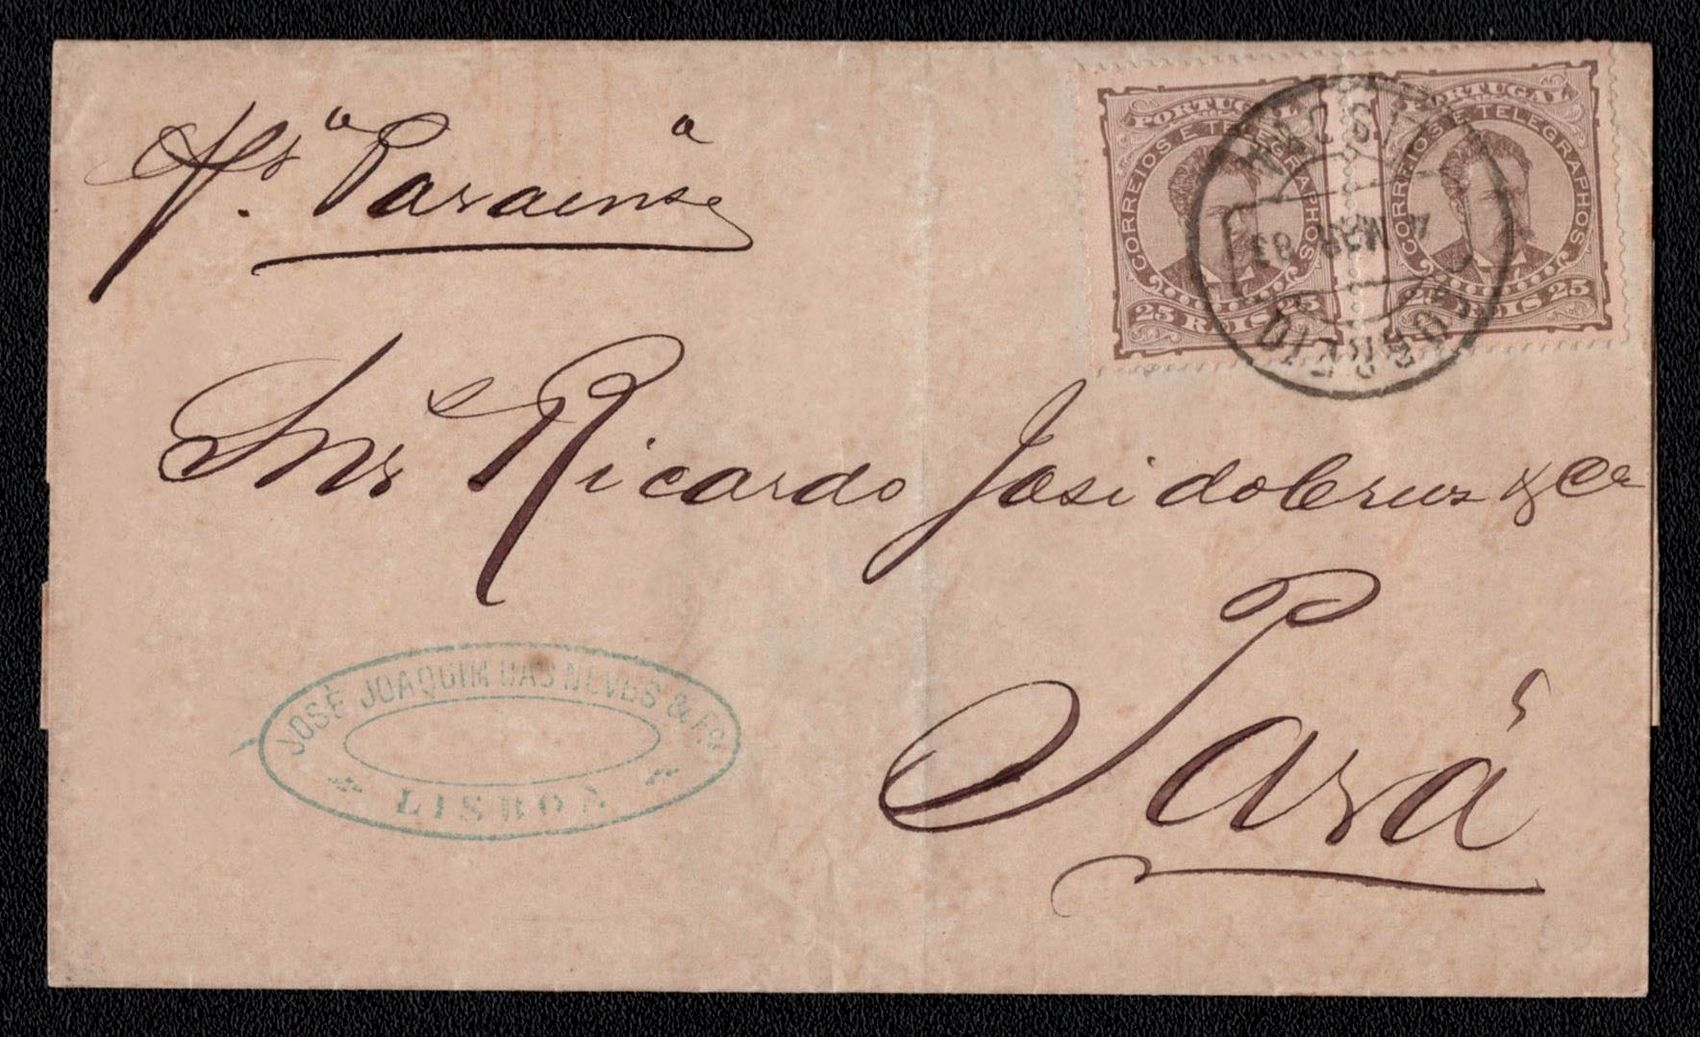 Vr. "Paraense"
Snrs Ricardo José da Cruz & Ca
Pará
PORTUGAL
CORREIOS E TELEGRAPHOS
25 REIS 25
PORTUGAL
CORREIOS E TELEGRAPHOS
25 REIS 25
83
JOSÉ JOAQUIM DAS NEVES & Fos
LISBOA